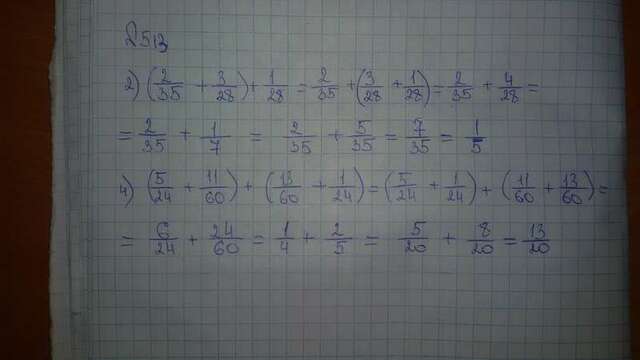 2513
2) (2/35 + 3/28) + 1/28 = 2/35 + (3/28 + 1/28) = 2/35 + 4/28 =
= 2/35 + 1/7 = 2/35 + 5/35 = 7/35 = 1/5
4) (5/24 + 11/60) + (13/60 + 1/24) = (5/24 + 1/24) + (11/60 + 13/60) =
= 6/24 + 24/60 = 1/4 + 2/5 = 5/20 + 8/20 = 13/20